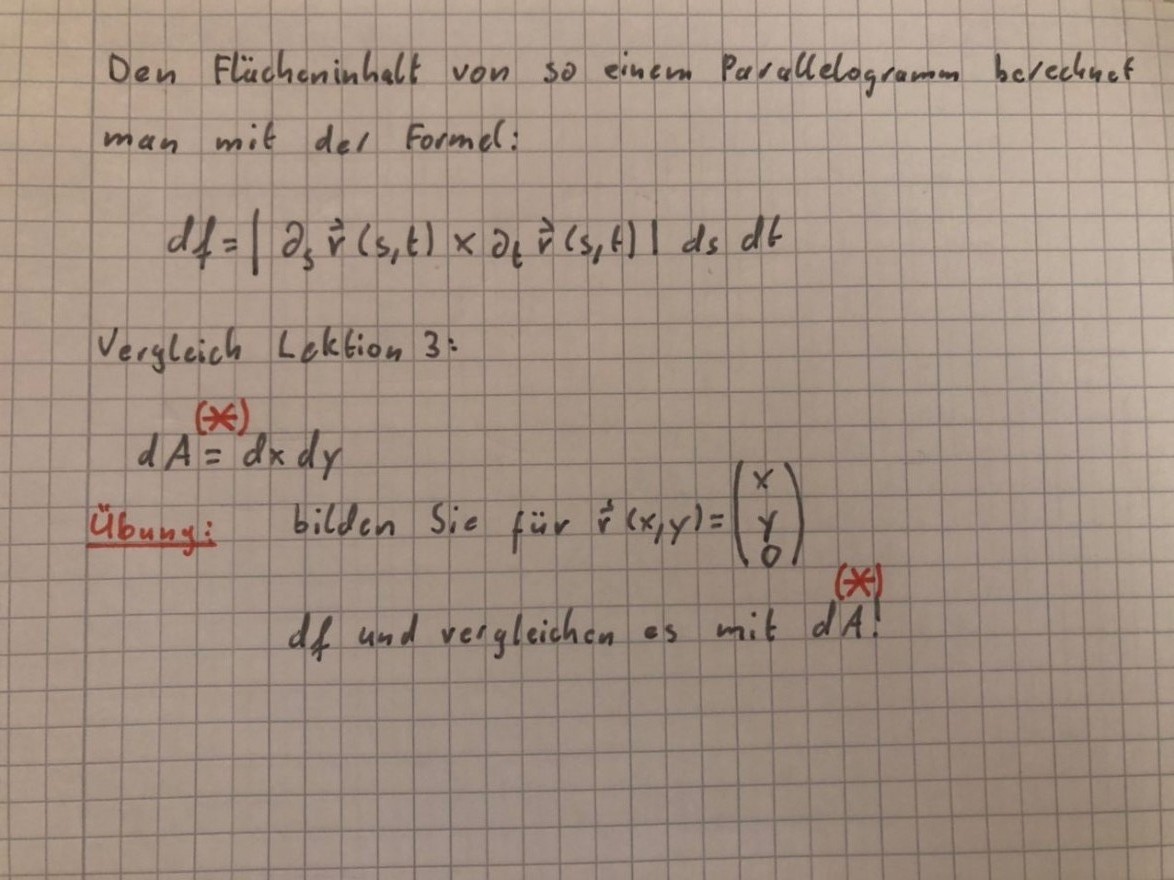 Den Flächeninhalt von so einem Parallelogramm berechnet
man mit der Formel:
df = | ∂ₛ r⃗ (s,t) × ∂ₜ r⃗ (s,t) | ds dt
Vergleich Lektion 3:
(*)
dA = dx dy
Übung: bilden Sie für r⃗ (x,y) = (x y 0)
(*)
df und vergleichen es mit dA!